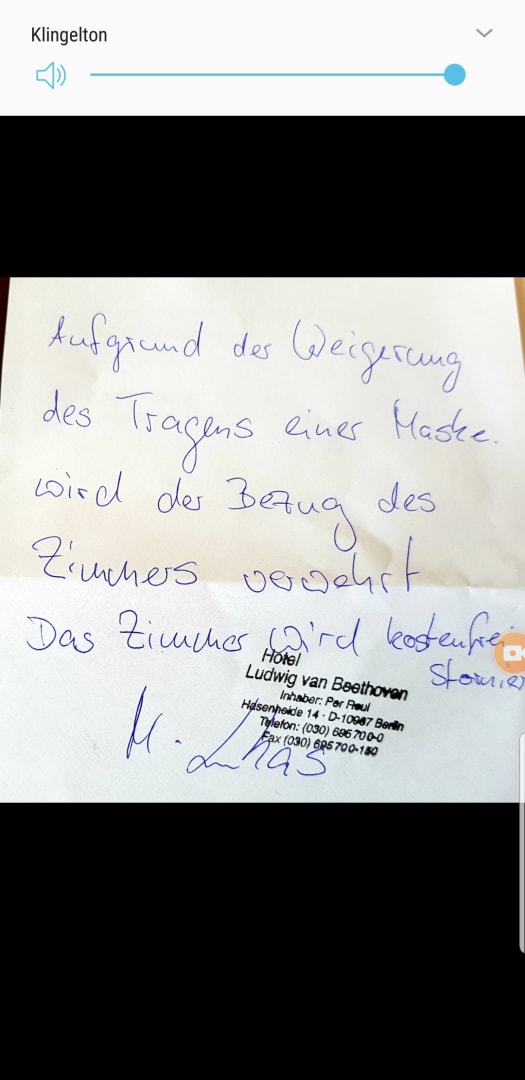 Klingelton
Aufgrund der Weigerung
des Tragens einer Maske.
wird der Bezug des
Zimmers verwehrt
Das Zimmer wird kostenfrei
stornier
Hotel
Ludwig van Beethoven
Inhaber: Per Raul
Hasenheide 14 · D-10967 Berlin
Telefon: (030) 695 700-0
Fax (030) 695 700-150